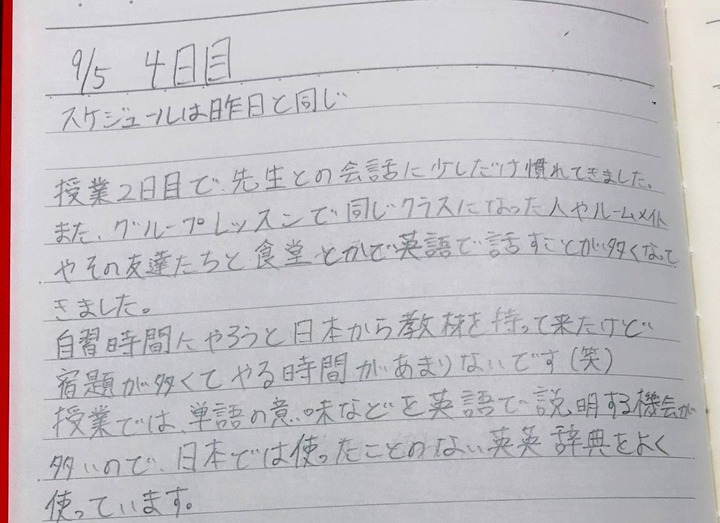 9/5 4日目
スケジュールは昨日と同じ
授業2日目で、先生との会話に少しだけ慣れてきました。
また、グループレッスンで同じクラスになった人やルームメイト
やその友達たちと食堂とかで英語で話すことが多くなって
きました。
自習時間にやろうと日本から教材を持って来たけど
宿題が多くてやる時間があまりないです(笑)
授業では、単語の意味などを英語で説明する機会が
多いので、日本では使ったことのない英英辞典をよく
使っています。